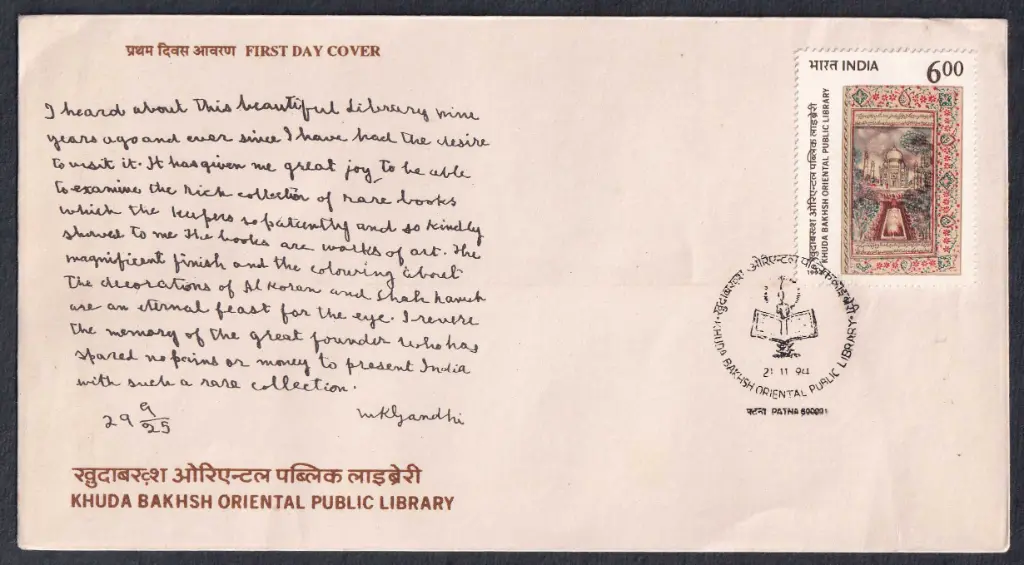 प्रथम दिवस आवरण FIRST DAY COVER
I heard about this beautiful Library nine
years ago and ever since I have had the desire
to visit it. It has given me great joy to be able
to examine the rich collection of rare books
which the keepers so patiently and so kindly
showed to me The books are works of art. The
magnificent finish and the colouring about
the decorations of Al Koran and Shah Nameh
are an eternal feast for the eye. I revere
the memory of the great founder who has
spared no pains or money to present India
with such a rare collection.
29 9/25
MKGandhi
खुदाबख़्श ओरिएन्टल पब्लिक लाइब्रेरी
KHUDA BAKHSH ORIENTAL PUBLIC LIBRARY
भारत INDIA 600
खुदाबख़्श ओरिएन्टल पब्लिक लाइब्रेरी
KHUDA BAKHSH ORIENTAL PUBLIC LIBRARY
खुदाबख़्श ओरिएन्टल पब्लिक लाइब्रेरी
KHUDA BAKHSH ORIENTAL PUBLIC LIBRARY
21 11 94
पटना PATNA